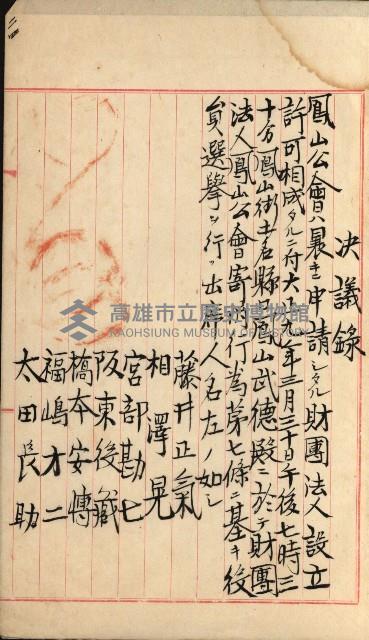 決議錄
鳳山公會ハ曩キニ申請シタル財團法人設立
許可相成タルニ付大正九年三月三十日午後七時三
十分鳳山街土名縣口鳳山武德殿ニ於テ財團
法人鳳山公會寄附行為第七條ニ基キ役
員選擧ヲ行フ出席人名左ノ如シ
藤井正氣
相澤晃
宮部勘七
阪東後藏
橋本安傳
福嶋才二
太田長助
高雄市立歷史博物館
KAOHSIUNG MUSEUM OF HISTORY